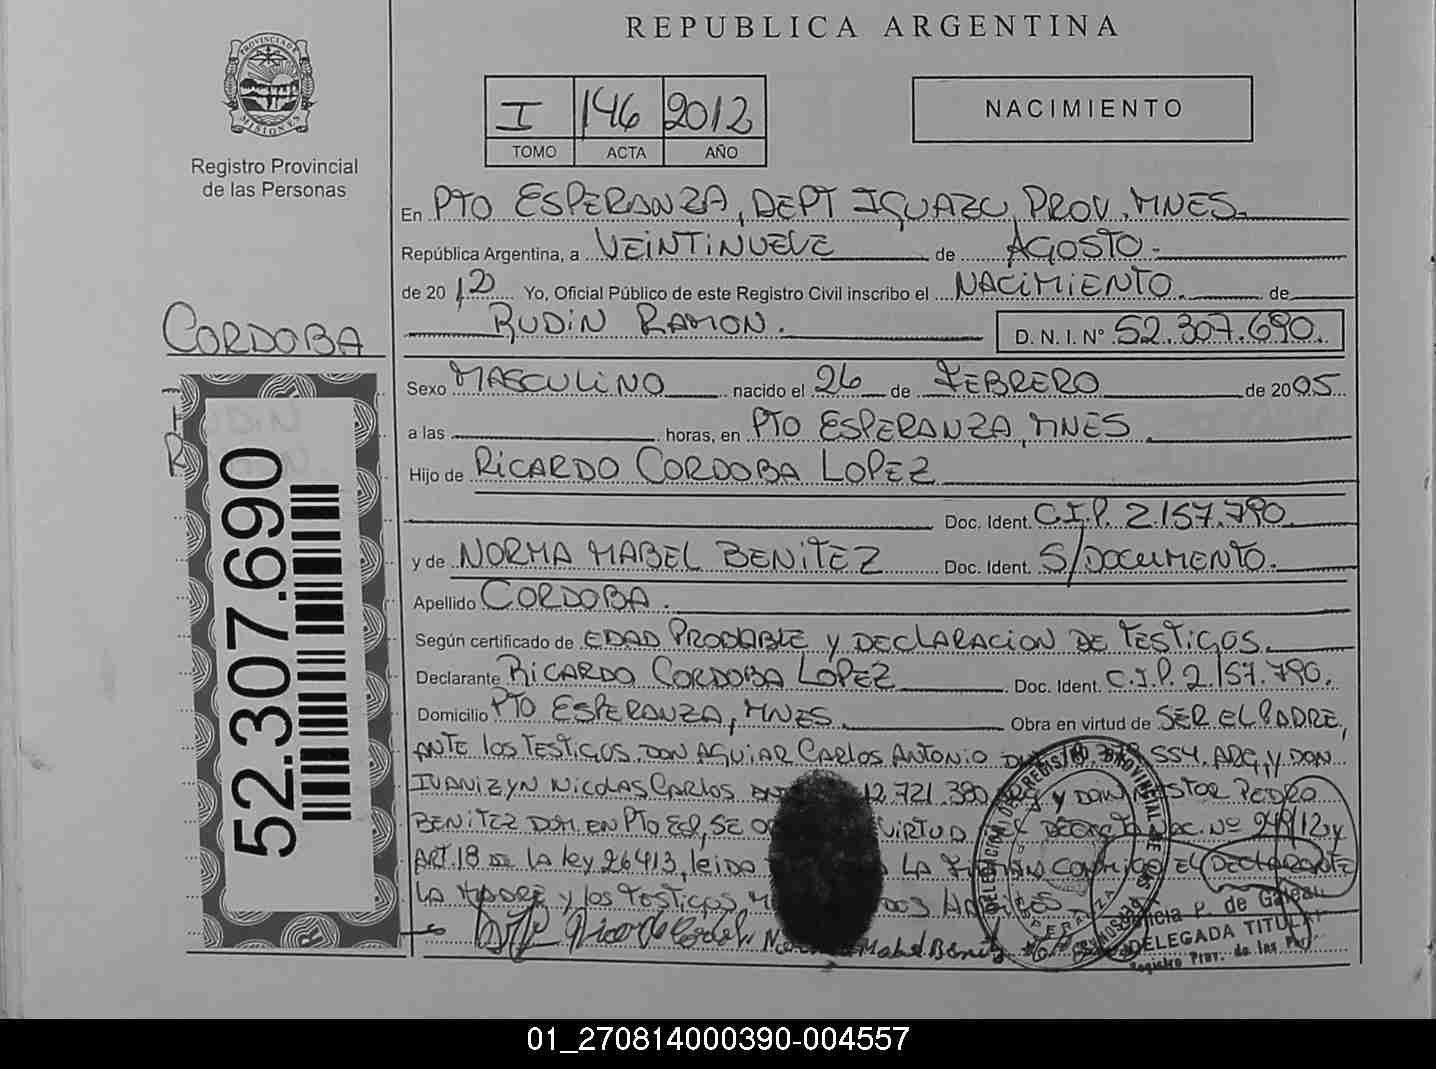 REPUBLICA ARGENTINA
PROVINCIA DE MISIONES
Registro Provincial
de las Personas
I 146 2012
TOMO ACTA AÑO
NACIMIENTO
En PTO ESPERANZA, DEPT IGUAZU, PROV. MNES.
República Argentina, a VEINTINUEVE de AGOSTO
de 2012 Yo, Oficial Público de este Registro Civil inscribo el NACIMIENTO de
RUDIN RAMON. D. N. I. Nº 52.307.690.
CORDOBA
52.307.690
Sexo MASCULINO nacido el 26 de FEBRERO de 2005
a las horas, en PTO ESPERANZA, MNES
Hijo de RICARDO CORDOBA LOPEZ
Doc. Ident. C.I.P. 2.157.790
y de NORMA MABEL BENITEZ Doc. Ident. S/DOCUMENTO.
Apellido CORDOBA.
Según certificado de EDAD PROBABLE y DECLARACION DE TESTIGOS.
Declarante RICARDO CORDOBA LOPEZ Doc. Ident. C.I.P. 2.157.790.
Domicilio PTO ESPERANZA, MNES Obra en virtud de SER EL PADRE,
ANTE los TESTIGOS, DON AGUIAR CARLOS ANTONIO 554, ARG, y DON
IVANIZYN NICOLAS CARLOS 12.721.380 y DON PEDRO
BENITEZ DOM. EN PTO ESP, SE VIRTUD Nº 249/12 y
ART. 18 DE LA ley 26413, leida LA FIRMAN CONMIGO EL DECLARANTE
LA MADRE y los TESTIGOS
Ricardo Cordoba Mabel Benitez
DELEGACION DEL REGISTRO PROVINCIAL DE LAS PERSONAS
ESPERANZA
P. de Galeau
DELEGADA TITULAR
Registro Prov. de las Per.
01_270814000390-004557